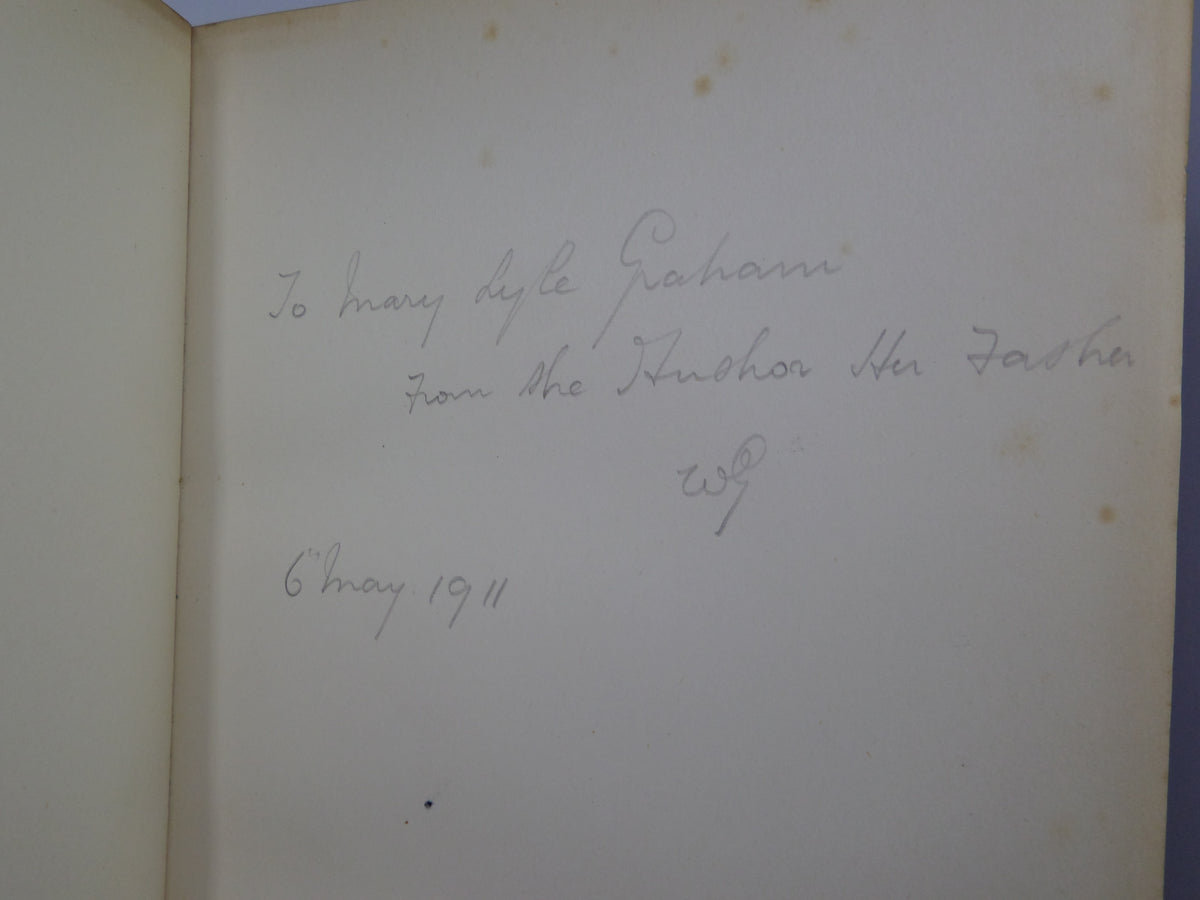 To Mary Lyle Graham
From the Author Her Father
WG
6" May. 1911